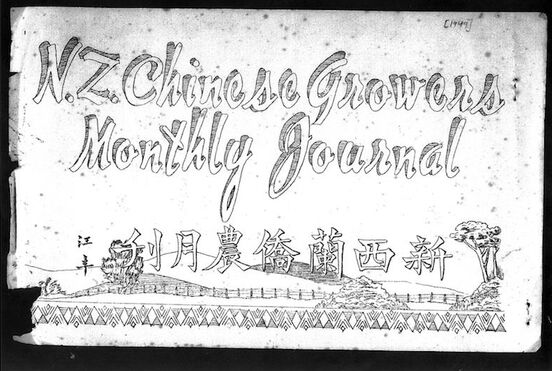 [1949]
N.Z. Chinese Growers
Monthly Journal
新西蘭僑農月刊
江丰